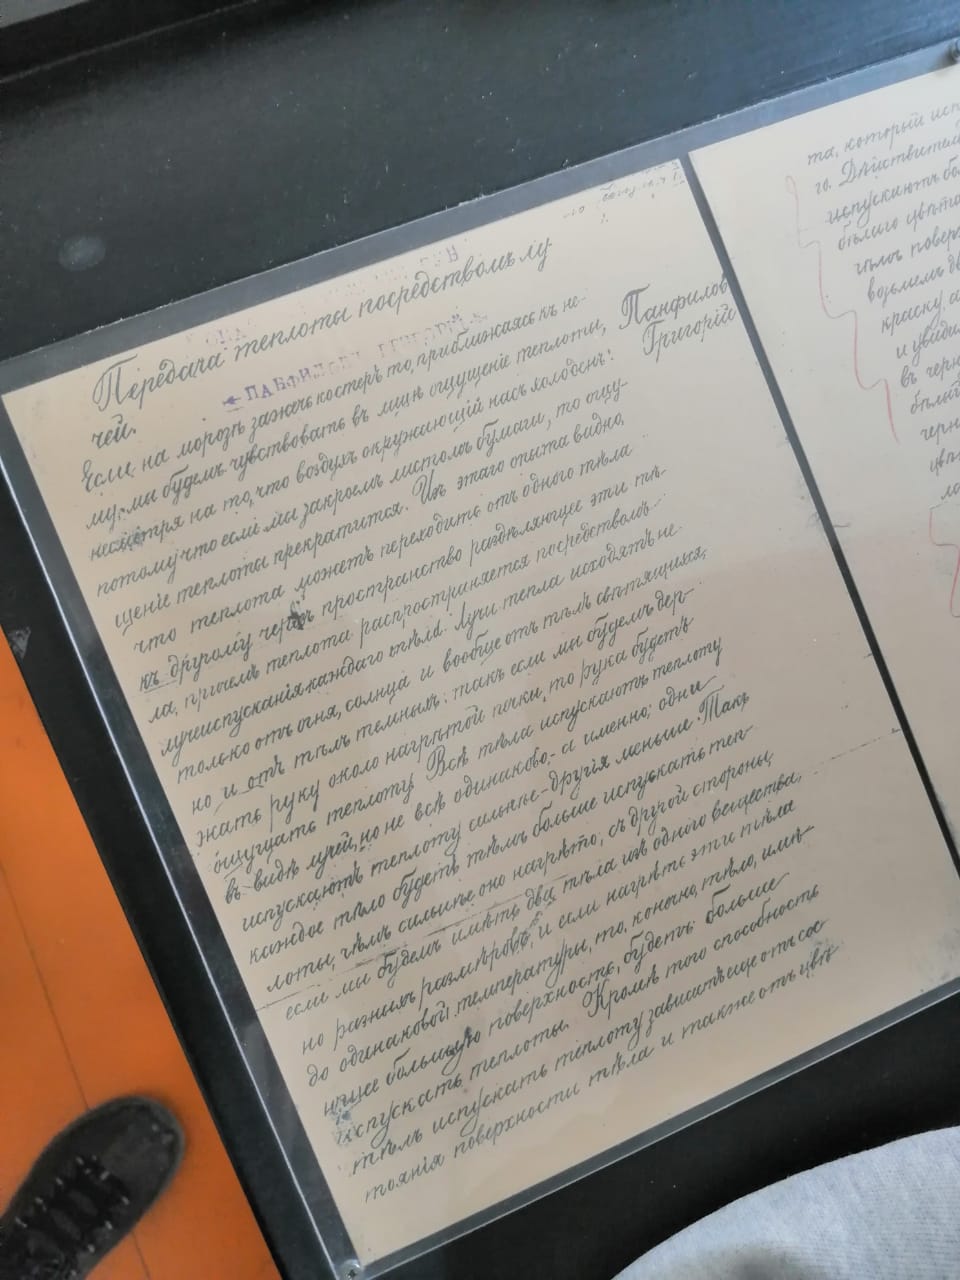 Передача теплоты посредствомъ лу
чей.
Панфилов
Григорій
Если на морозѣ зажечь костеръ то, приближаясь къ не-
му, мы будемъ чувствовать въ лицѣ ощущеніе теплоты,
несмотря на то, что воздухъ окружающій насъ холоденъ:
потому что если мы закроемъ листомъ бумаги, то ощу-
щеніе теплоты прекратится. Изъ этаго опыта видно,
что теплота можетъ переходить отъ одного тѣла
къ другому черезъ пространство раздѣляющее эти тѣ-
ла, причемъ теплота распространяется посредствомъ
лучеиспусканія каждаго тѣла. Лучи тепла исходятъ не
только отъ огня, солнца и вообще отъ тѣлъ свѣтящихся,
но и отъ тѣлъ темныхъ: такъ если мы будемъ дер-
жать руку около нагрѣтой печки, то рука будетъ
ощущать теплоту. Всѣ тѣла испускаютъ теплоту
въ видѣ лучей, но не всѣ одинаково, а именно: одни
испускаютъ теплоту сильнѣе - другія меньше. Такъ
каждое тѣло будетъ тѣмъ больше испускать теп-
лоты, чѣмъ сильнѣе оно нагрѣто; съ другой стороны,
если мы будемъ имѣть два тѣла изъ одного вещества,
но разныхъ размѣровъ, и если нагрѣть эти тѣла
до одинаковой температуры, то, конечно, тѣло, имѣ-
ющее большую поверхность, будетъ больше
испускать теплоты. Кромѣ того способность
тѣлъ испускать теплоту зависитъ еще отъ сос
тоянія поверхности тѣла и также отъ цвѣ
та, который
го. Дѣйствител
испускаютъ бо
бѣлаго цвѣта
возьмемъ дв
краску, а
и увиди
въ черн
бѣлый
черн
цвѣ